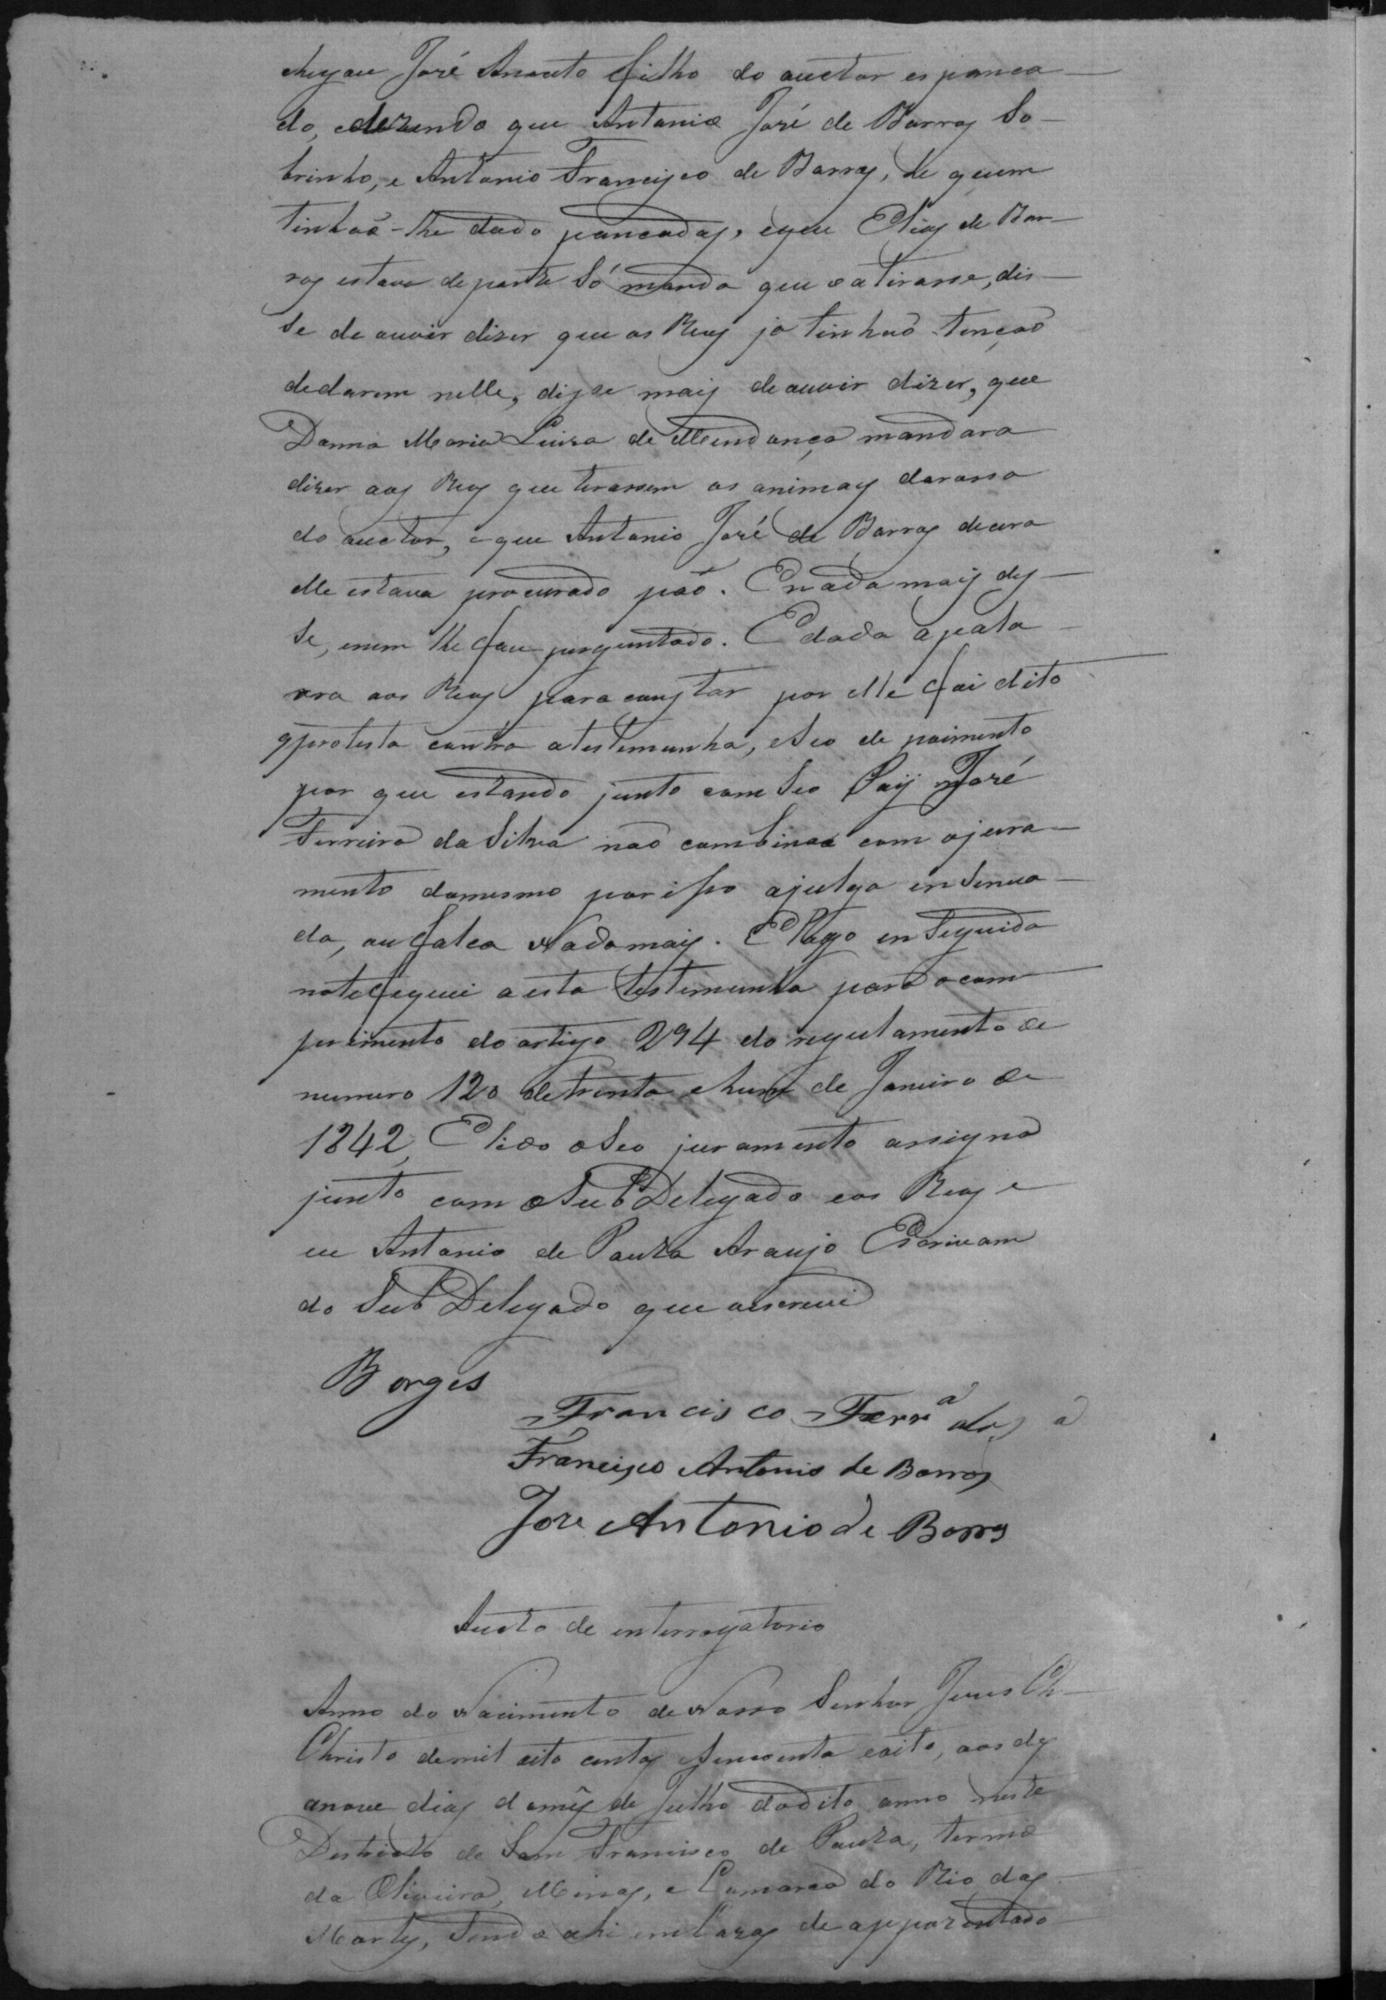 chegou José Ananto filho do auctor espanca
do, dizendo que Antonio José de Barros So-
brinho, e Antonio Francisco de Barros, he quem
tinhaõ-lhe dado pancadas, eque Elias de Bar-
ros estava de parte Só mando que o atirasse, dis-
se de ouvir dizer que os Reos ja tinhaõ tençaõ
dedarem nelle, disse mais deouvir dizer, que
Donna Maria Luiza de Mendonça mandara
dizer aos Reos que tirassem os animays darossa
do auctor, e que Antonio José de Barros
elle estava procurado páo. Enada mais dis-
se, enem lhe foi perguntado. E dada apala-
vra aos Reos para constar por elle foi dito
q protesta contra atestemunha, eseo de poimento
por que estando junto com Seo Pay José
Ferreira da Silva naõ combinaa com ojura-
mento domesmo por isso ajulga insinua-
da, ou falca Nadamais. Elogo em Seguida
notefiquei aesta testemunha para ocom
primento do artigo 294 do regulamento de
numero 120 detrinta ehum de Janeiro de
1842, Elido oSeo juramento assigna
junto com oSub Delegado eos Reos e
eu Antonio de Paula Araujo Escrivam
do Sub Delegado que oescrevi
Borges
Francisco Ferrª da Sª
Francisco Antonio de Barros
Jose Antonio de Barros
Aucto de enterrogatorio
Anno do Nacimento de Nosso Senhor Jesus Ch-
Christo demil oito centos Sincoenta eoito, aos dez
anove dias do mês de Julho dodito anno neste
Destricto de Sam Francisco de Paula, termo
da Oliveira, Minas, e Comarca do Rio das
Mortes, Sendo ahi em Cazas de apposentado